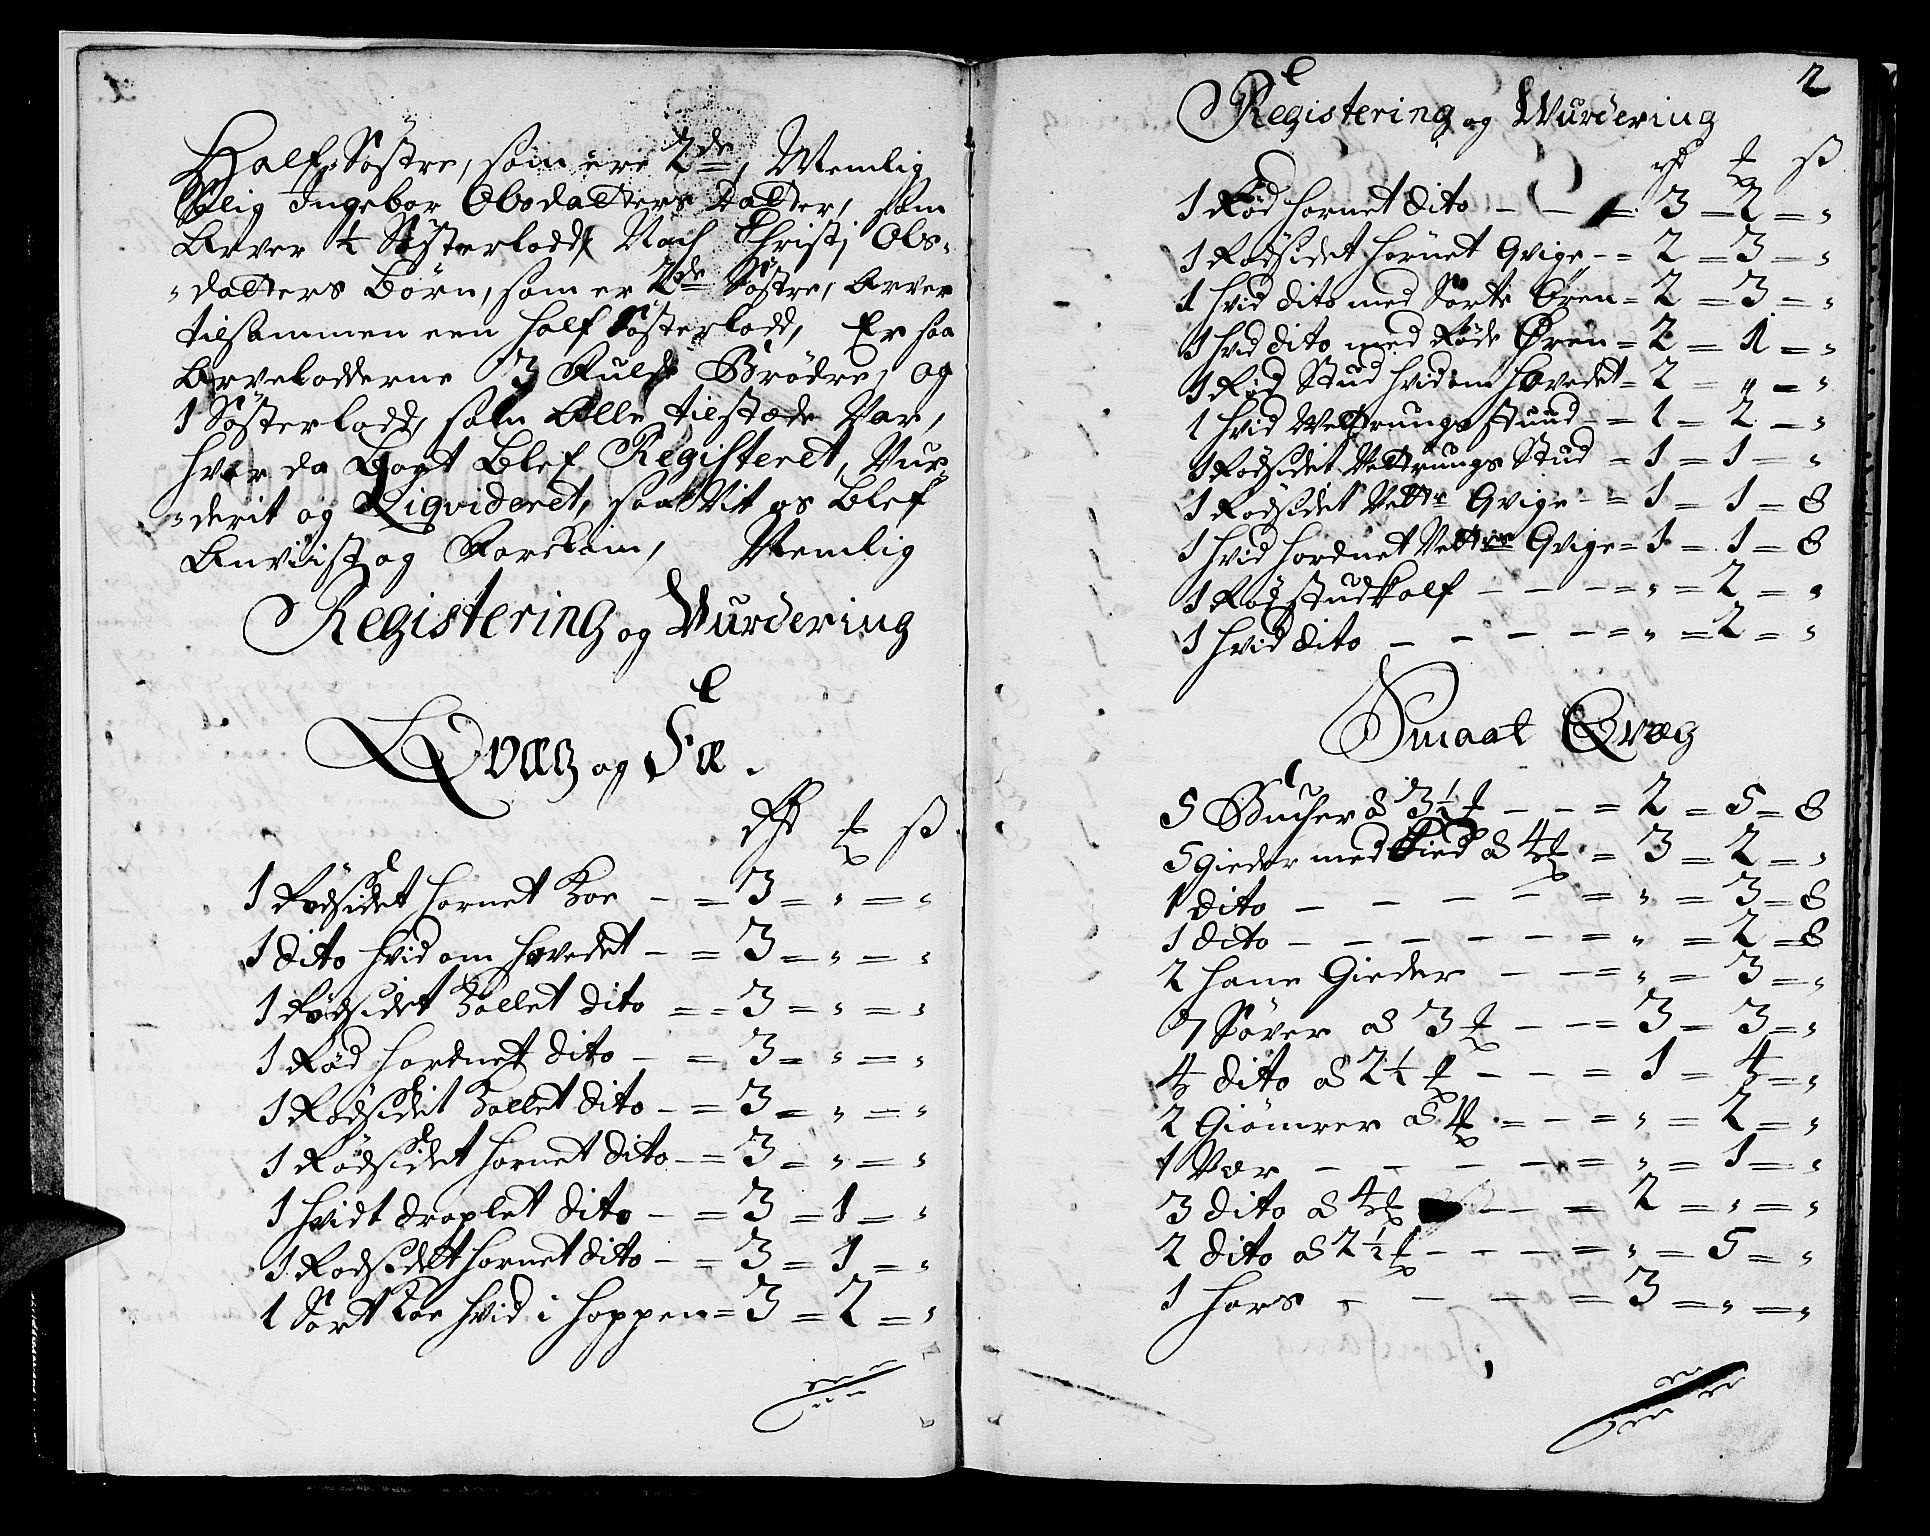 Half Søstre, som ere 2de, Nemlig
Salig Ingebor Olsdatters Datter, som
Arver ½ Søsterlodd, Noch Christj Ols-
-datters Børn, som er 2de Søstre, Arver
tilsammen een half Søsterlodd, Er saa
Arvelodderne 3 Fulde Brødre, og
1 Søsterlodd, som Alle tilstæde Var,
hvor da Boet Blef Registeret, Vur-
-derit og Liqvideret, saa Vit os Blef
Anviist og Forekom, Nemlig
Registering og Vurdering
Qvæg og Fæ.
Rd ƶ ß
1 Rødsidet hornet Koe - = 3 = " = "
1 dito hvid om hovedet - = 3 = " = "
1 Rødsidet Kollet dito = = 3 = " = "
1 Rød hordnet dito - = 3 = " = "
1 Rødsidet Kollet dito - = 3 = " = "
1 Rødsidet hornet dito - = 3 = " = "
1 hvidt droplet dito - = 3 = 1 = "
1 Rødsidet hornet dito - = 3 = 1 = "
1 Sort Koe hvid i hoppen = 3 = 2 = "
2
Registering og Wurdering
rd ƶ ß
1 Rød hornet dito - - = 3 = 2 = "
1 Rødsidet hornet Qvige - = 2 = 3 = "
1 hvid dito med Sorte Øren = 2 = 3 = "
1 hvid dito med Røde Øren = 2 = 1 = "
1 Rød Stud hvid om hovedet = 2 = " = "
1 hvid Vettrungs Stuud = 1 = 2 = "
1 Rødsidet Vettrungs Stud = 1 = 1 = "
1 Rødsidet Vettr Qvige - = 1 = 1 = 8
1 hvid hordnet Vettr Qvige = 1 = 1 = 8
1 Rød studkalf - - - = " = 2 = "
1 hvid dito - - - - = " = 2 = "
Smaat Qvæg
5 Bucher a 3½ ƶ - - = 2 = 5 = 8
5 gieder med Kied a 4 ƶ = 3 = 2 = "
1 dito - - - - = " = 3 = 8
1 dito - - - - - = " = 2 = 8
2 hane Gieder - - = " = 3 = "
7 Søver a 3 ƶ - - = 3 = 3 = "
4 dito a 2½ ƶ - - = 1 = 4 = "
2 Giømrer a 1 ƶ - = " = 2 = "
1 Vær - - - - = " = 1 = "
3 dito a 4 ƶ - - = 2 = " = "
2 dito a 2½ ƶ - - - = " = 5 = "
1 hors - - - - = 3 = " = "